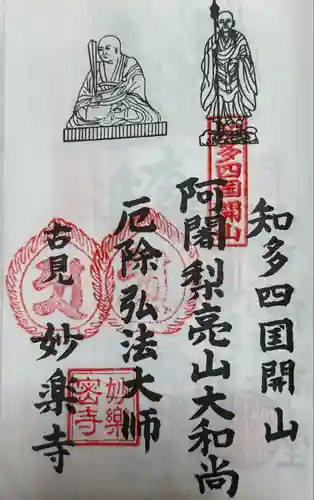 知多四国開山
知多四国開山
阿闍梨亮山大和尚
厄除弘法大師
古見
妙楽寺
妙樂
密寺